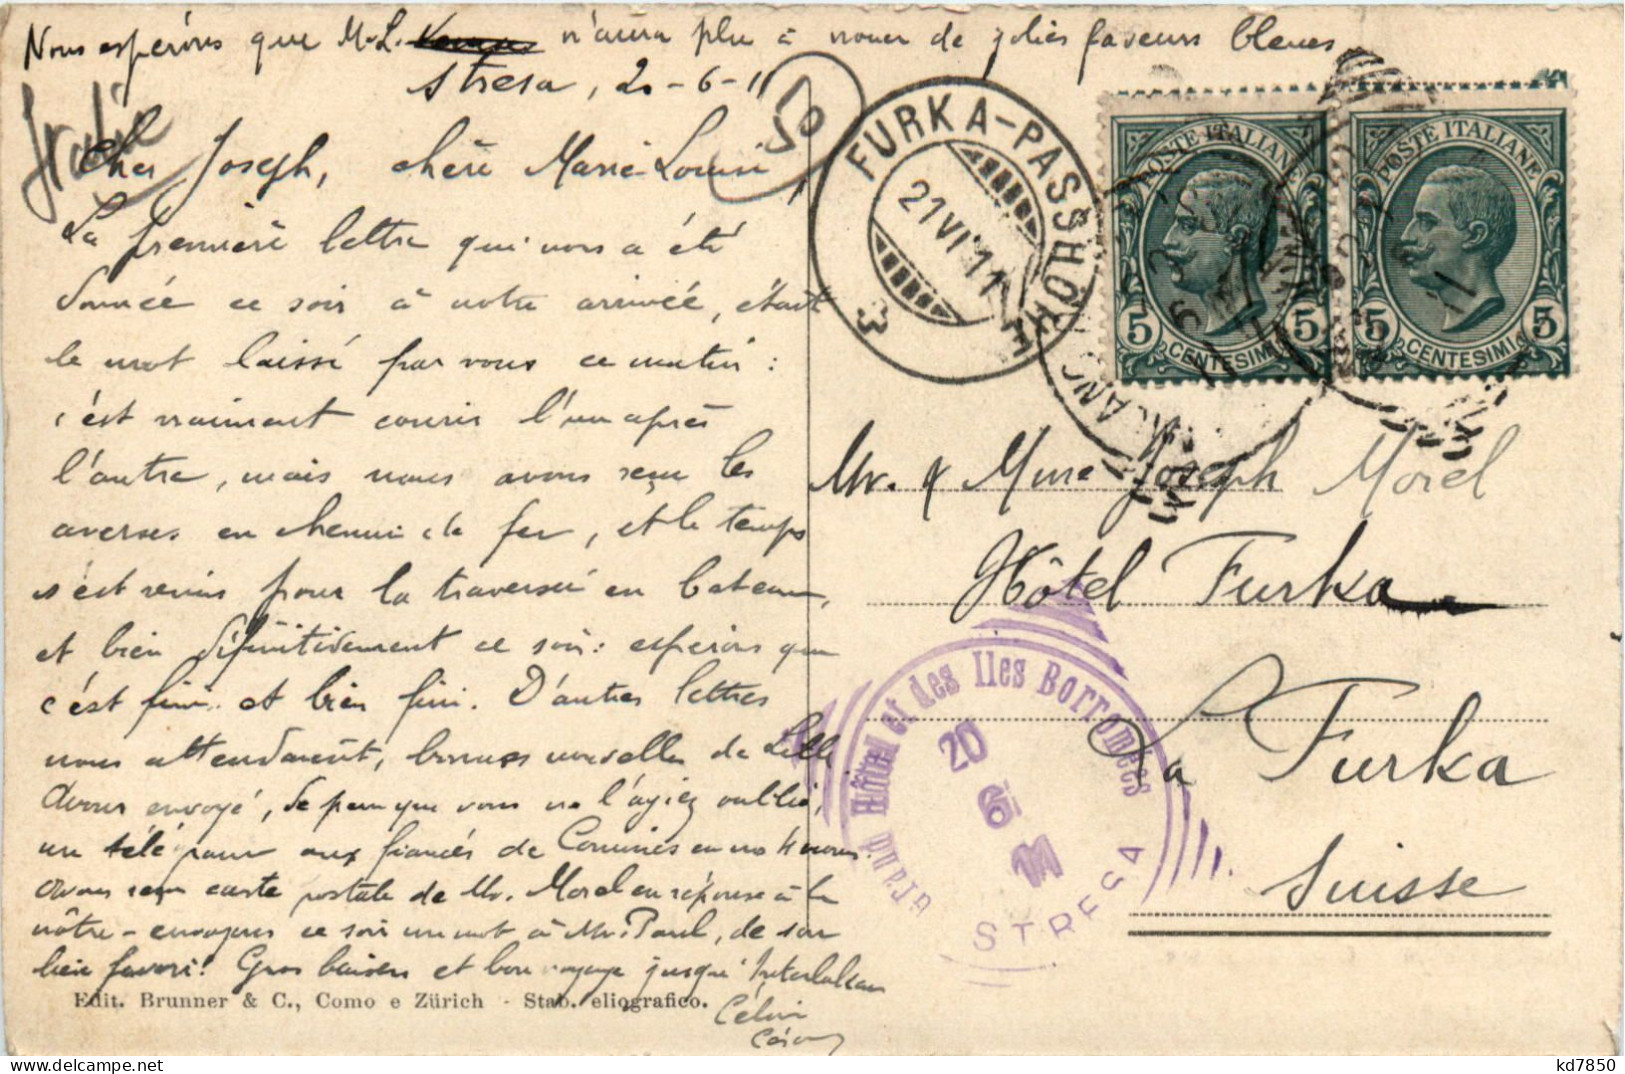 Nous espérons que M.L. n'aura plu à nouer de jolies faveurs bleues
Stresa, 20-6-11
50
Italie
Cher Joseph, chère Marie-Louise,
La première lettre qui nous a été
donnée ce soir à notre arrivée, était
le mot laissé par vous ce matin :
c'est vraiment courir l'un après
l'autre, mais nous avons reçu les
averses en chemin de fer, et le temps
s'est remis pour la traversée en bateau,
et bien définitivement ce soir : espérons que
c'est fini et bien fini. D'autres lettres
nous attendaient, bonnes nouvelles de Lille
Avons envoyé, de peur que vous ne l'ayiez oublié,
un télé pour aux fiancés de Comines en nos 4 noms.
Avons reçu carte postale de Mr. Morel en réponse à la
nôtre - envoyons ce soir un mot à Mr. Paul, de son
lieu favori ! Gros baisers et bon voyage jusqu'Interlaken
Céline
Edit. Brunner & C., Como e Zürich - Stab. eliografico.
FURKA-PASSHÖHE
21 VI 11
3
POSTE ITALIANE
5 5
CENTESIMI
POSTE ITALIANE
5 5
CENTESIMI
MILANO
Mr. & Mme Joseph Morel
Hôtel Furka
La Furka
Suisse
Grand Hôtel et des Iles Borromées
20
6
11
STRESA
kd7850